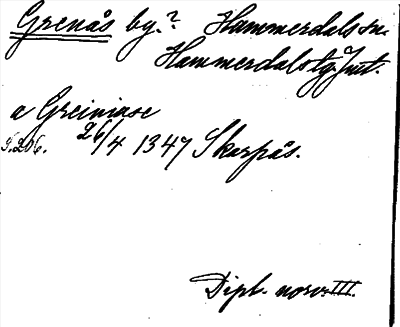 Grenås by.? Hammerdals sn.
Hammerdals tg. Jmt.
a Greiniase
S. 206. 26/4 1347 Skarpås.
Dipl. norv. III.